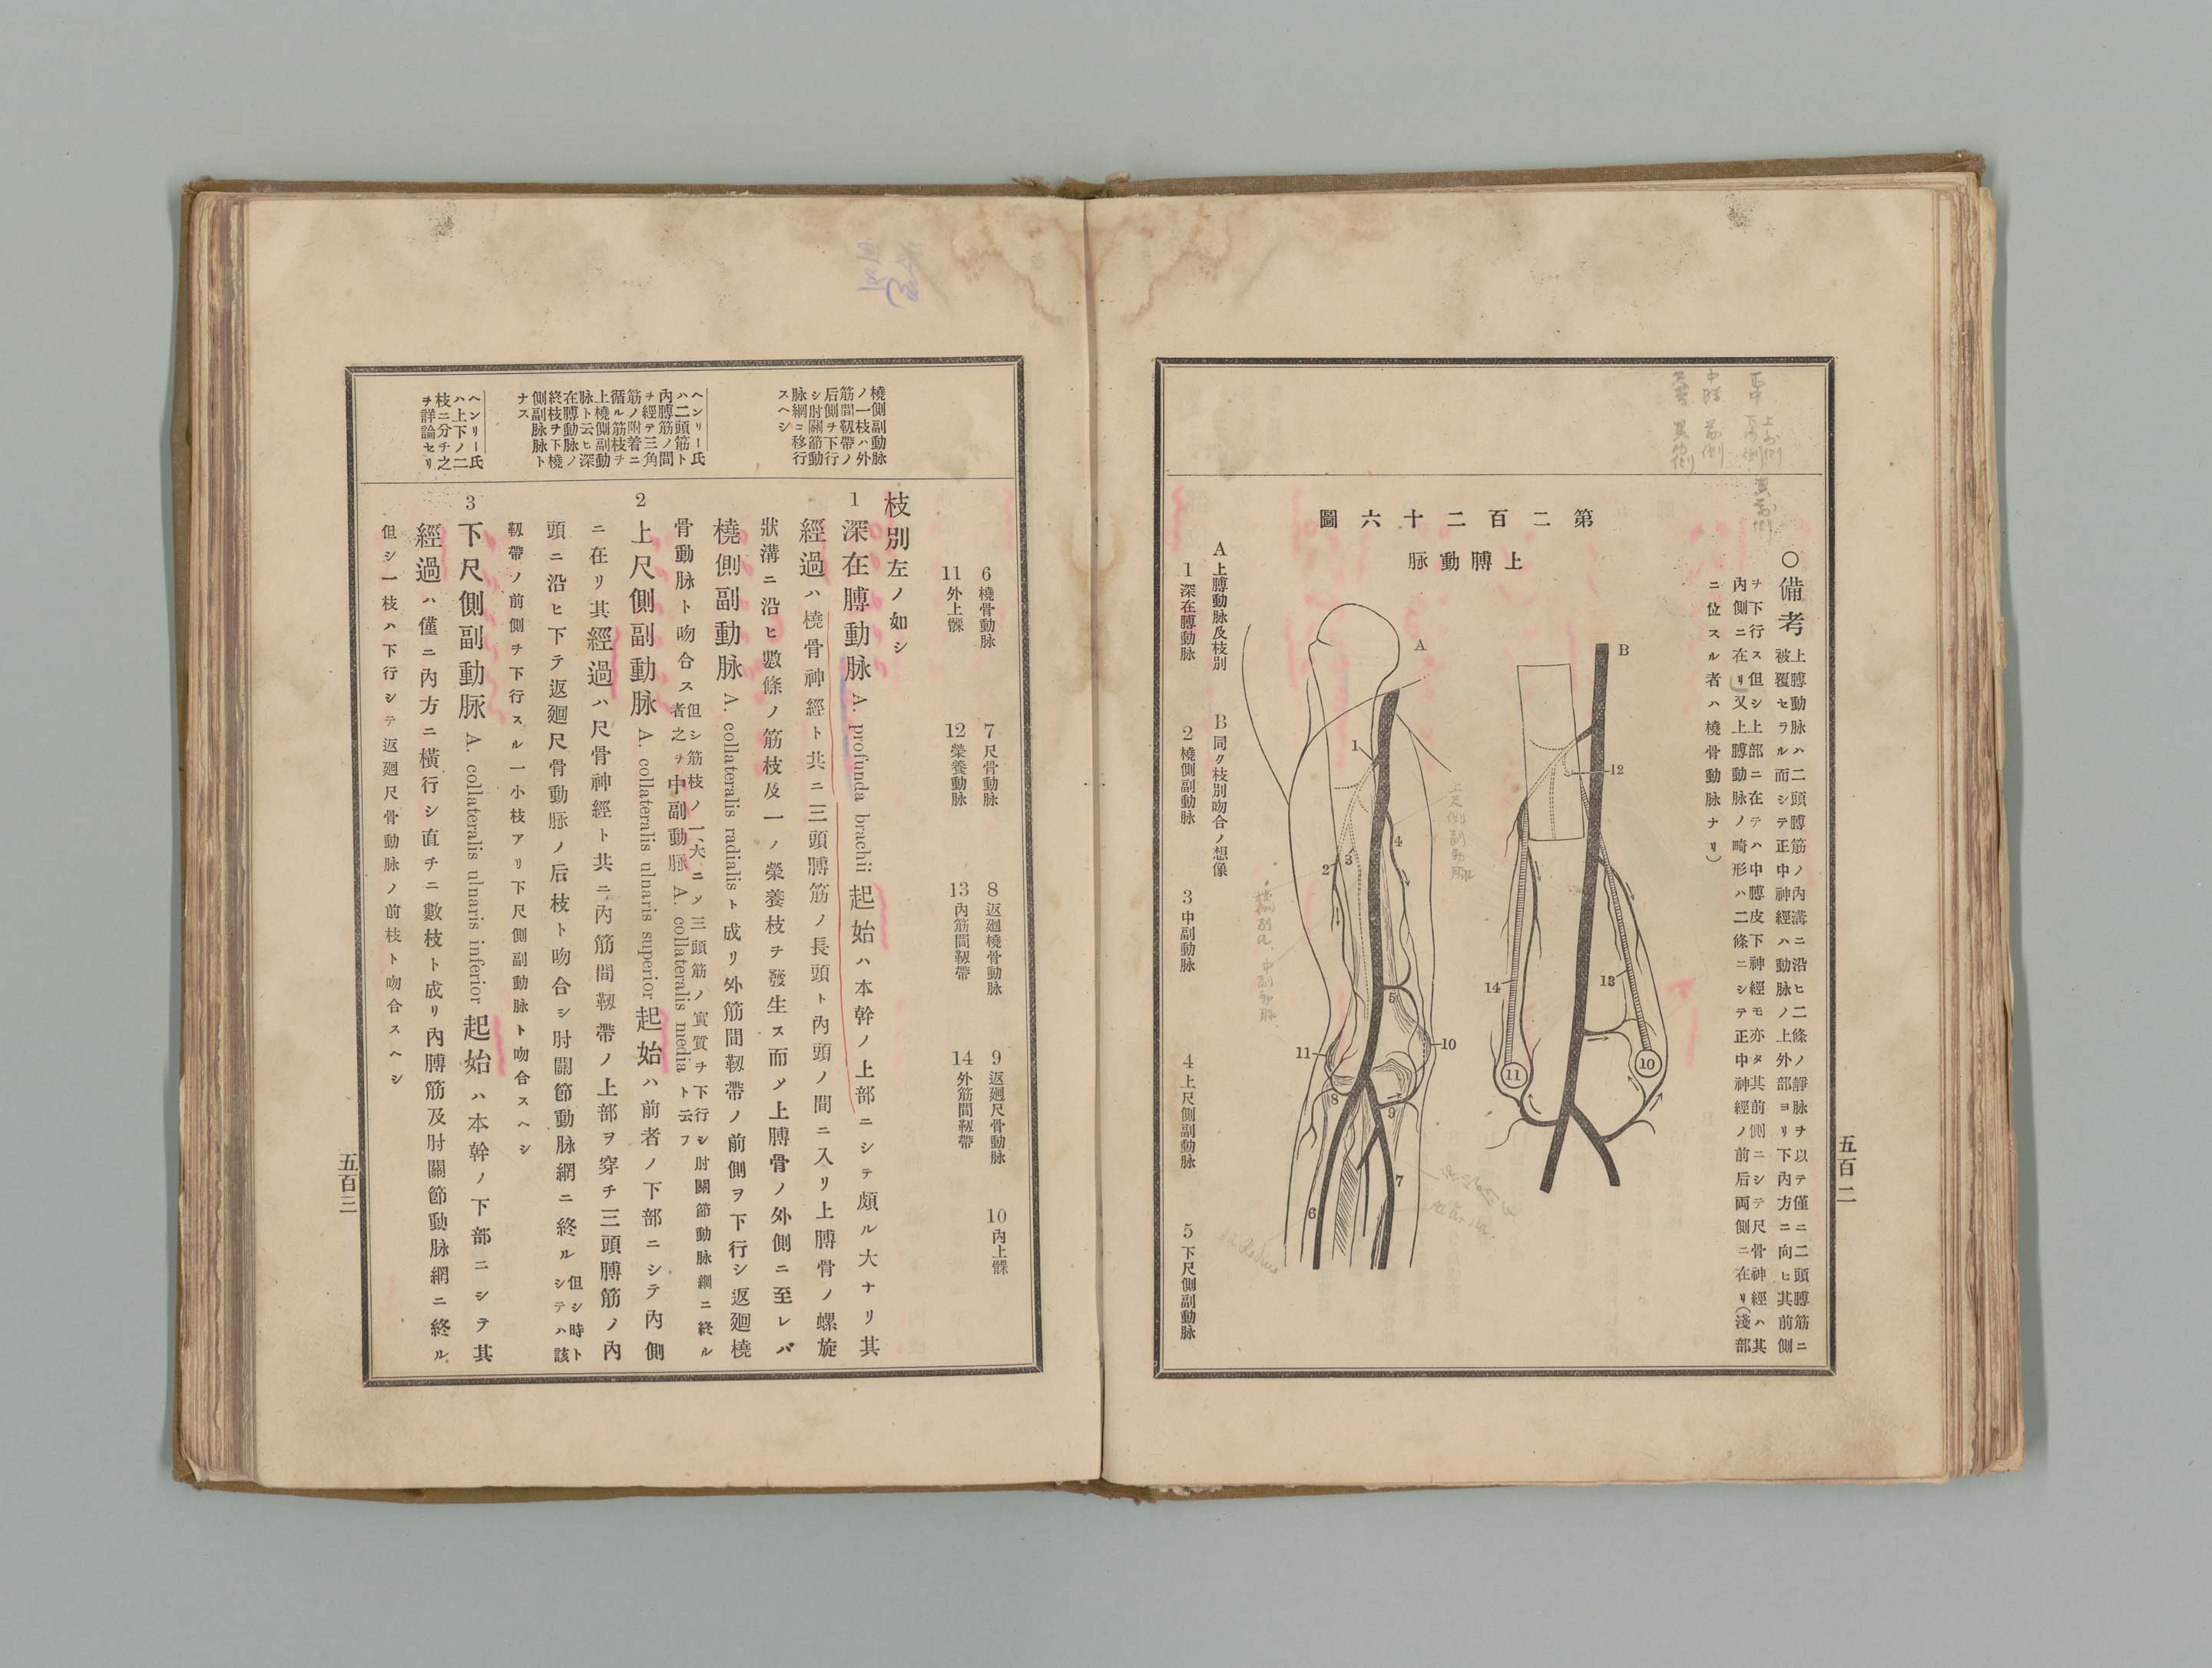 五百二
○備考
上膊動脉ハ二頭膊筋ノ內溝ニ沿ヒ二條ノ靜脉ヲ以テ僅ニ二頭膊筋ニ
被覆セラル而シテ正中神經ハ動脉ノ上外部ヨリ下內方ニ向ヒ其前側
ヲ下行ス但シ上部ニ在テハ中膊皮下神經モ亦タ其前側ニシテ尺骨神經ハ其
內側ニ在リ又上膊動脉ノ畸形ハ二條ニシテ正中神經ノ前后両側ニ在リ(淺部
ニ位スル者ハ橈骨動脉ナリ)
第二百二十六圖
上膊動脉
A
B
1
2
3
4
5
6
7
8
9
10
11
12
13
14
10
11
A 上膊動脉及枝別
B 同ク枝別吻合ノ想像
1 深在膊動脉
2 橈側副動脉
3 中副動脉
4 上尺側副動脉
5 下尺側副動脉
6 橈骨動脉
7 尺骨動脉
8 返廻橈骨動脉
9 返廻尺骨動脉
10 內上髁
11 外上髁
12 榮養動脉
13 內筋間靱帶
14 外筋間靱帶
橈側副動脉
ノ一枝ハ外
筋間靱帶ノ
后側ヲ下行
シ肘關節動
脉網ニ移行
スヘシ
枝別左ノ如シ
1 深在膊動脉 A. profunda brachii 起始ハ本幹ノ上部ニシテ頗ル大ナリ其
經過ハ橈骨神經ト共ニ三頭膊筋ノ長頭ト內頭ノ間ニ入リ上膊骨ノ螺旋
狀溝ニ沿ヒ數條ノ筋枝及一ノ榮養枝ヲ發生ス而ソ上膊骨ノ外側ニ至レバ
橈側副動脉 A. collateralis radialis ト成リ外筋間靱帶ノ前側ヲ下行シ返廻橈
骨動脉ト吻合ス
但シ筋枝ノ一大ニソ三頭筋ノ實質ヲ下行シ肘關節動脉網ニ終ル
者之ヲ中副動脉 A. collateralis media ト云フ
ヘンリー氏
ハ二頭筋ト
內膊筋ノ間
ヲ經テ三角
筋ノ附着ニ
循ル筋枝ヲ
上橈側副動
脉ト云ヒ深
在膊動脉ノ
終枝ヲ下橈
側副動脉ト
ナス
2 上尺側副動脉 A. collateralis ulnaris superior 起始ハ前者ノ下部ニシテ內側
ニ在リ其經過ハ尺骨神經ト共ニ內筋間靱帶ノ上部ヲ穿チ三頭膊筋ノ內
頭ニ沿ヒ下テ返廻尺骨動脉ノ后枝ト吻合シ肘關節動脉網ニ終ル
但シ時ト
シテハ該
靱帶ノ前側ヲ下行スル一小枝アリ下尺側副動脉ト吻合スヘシ
ヘンリー氏
ハ上下ノ二
枝ニ分チ之
ヲ詳論セリ
3 下尺側副動脉 A. collateralis ulnaris inferior 起始ハ本幹ノ下部ニシテ其
經過ハ僅ニ內方ニ橫行シ直チニ數枝ト成リ內膊筋及肘關節動脉網ニ終ル
但シ一枝ハ下行シテ返廻尺骨動脉ノ前枝ト吻合スヘシ
五百三